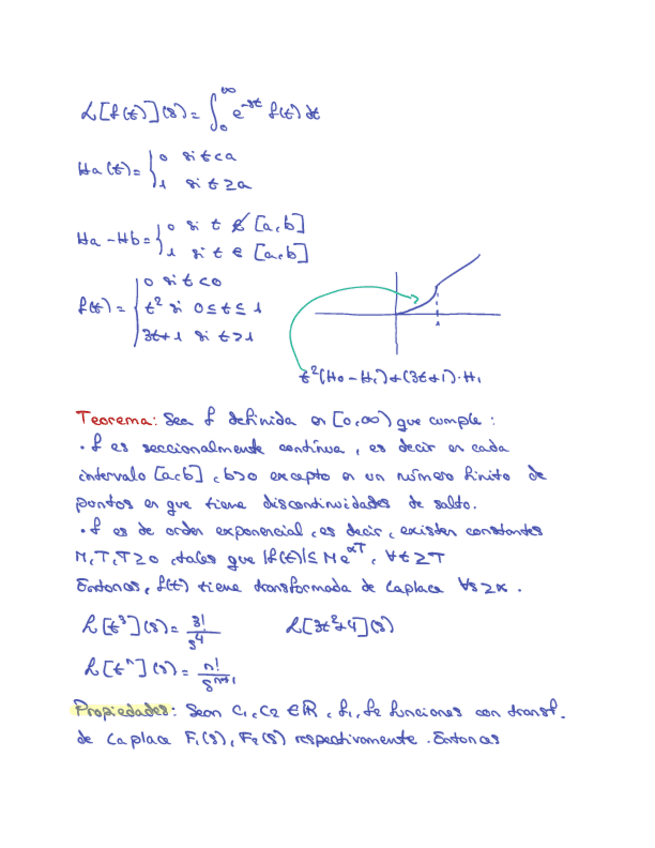 L[f(t)](s) = ∫₀^∞ e^-st f(t) dt
Ha(t) = { 0 si t<a
1 si t≥a
Ha - Hb = { 0 si t ∉ [a,b]
1 si t ∈ [a,b]
f(t) = { 0 si t<0
t² si 0≤t≤1
3t+1 si t>1
1
t²(H₀ - H₁) + (3t+1)·H₁
Teorema: Sea f definida en [0,∞) que cumple:
· f es seccionalmente contínua, es decir en cada
intervalo [a,b], b>0 excepto en un número finito de
puntos en que tiene discontinuidades de salto.
· f es de orden exponencial, es decir, existen constantes
M, T, T≥0, tales que |f(t)| ≤ Me^αT, ∀t≥T
Entonces, f(t) tiene transformada de Laplace ∀s≥α.
L[t³](s) = 3!/s⁴ L[3t²+4](s)
L[tⁿ](s) = n!/sⁿ⁺¹
Propiedades: Sean C₁, C₂ ∈ ℝ, f₁, f₂ funciones con transf.
de Laplace F₁(s), F₂(s) respectivamente. Entonces